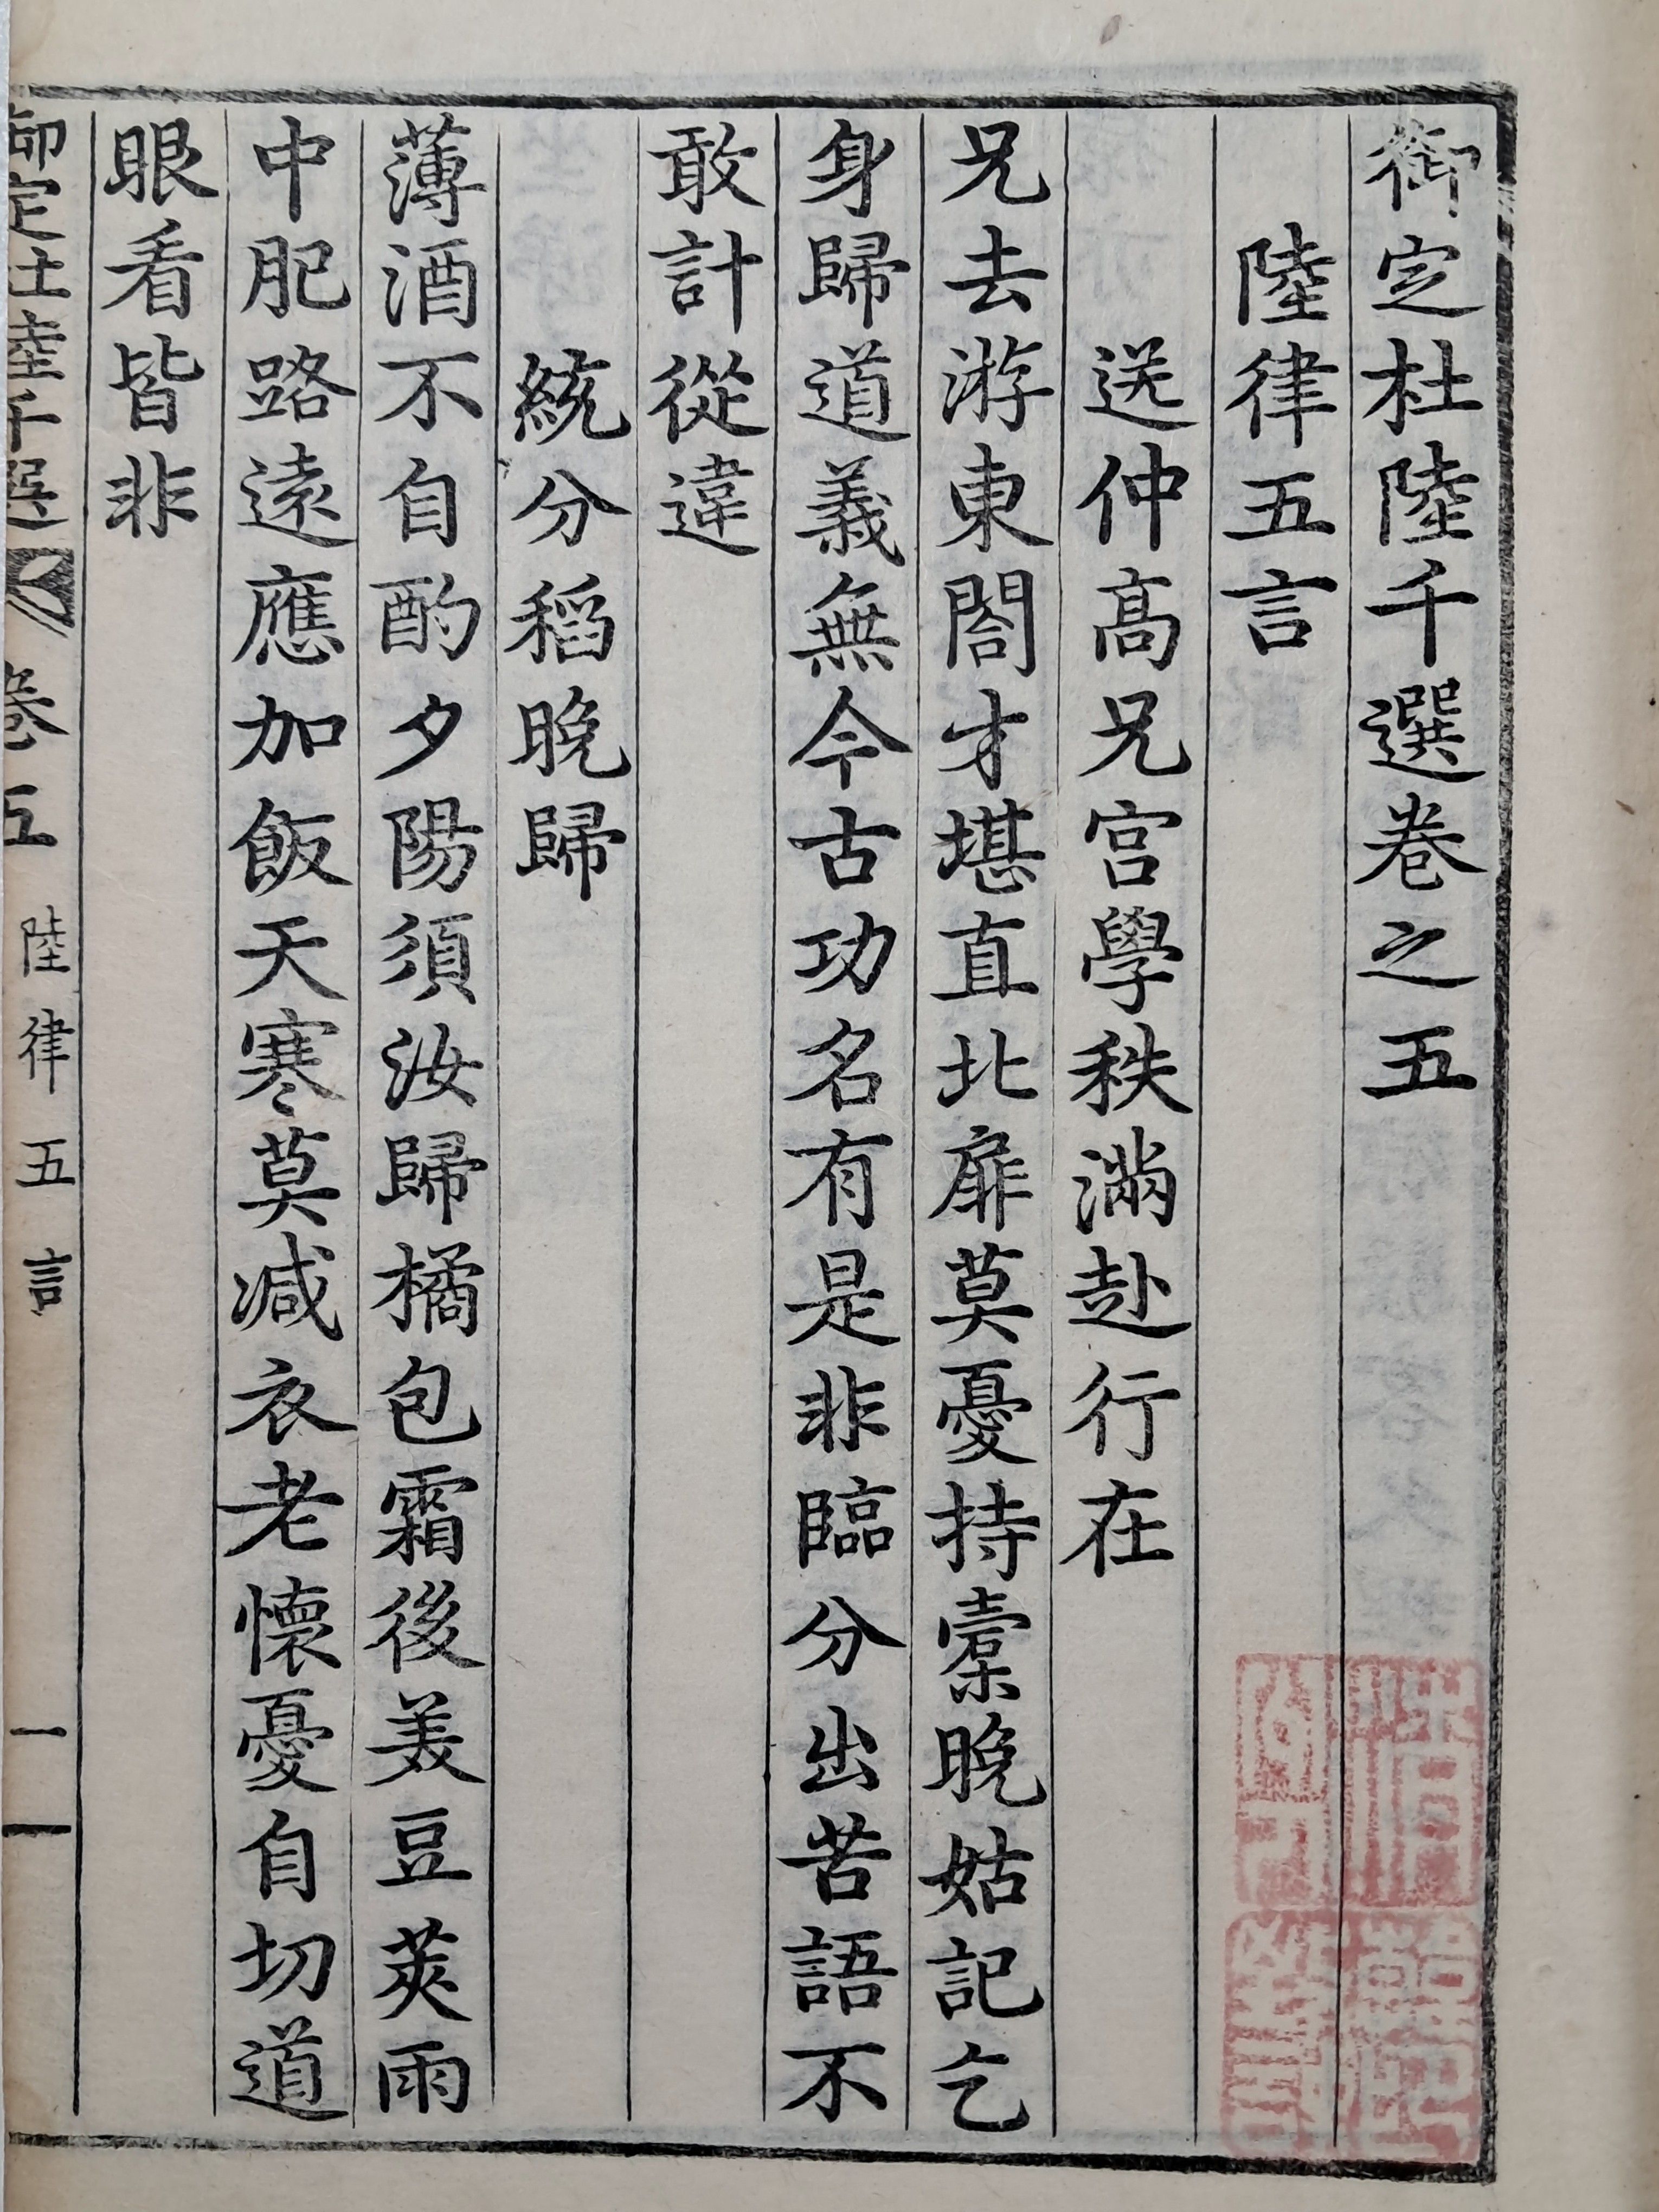 御定杜陸千選卷之五
陸律五言
送仲高兄宮學秩滿赴行在
兄去游東閤才堪直北扉莫憂持槖晚姑記乞
身歸道義無今古功名有是非臨分出苦語不
敢計從違
統分稻晚歸
薄酒不自酌夕陽須汝歸橘包霜後美豆莢雨
中肥路遠應加飯天寒莫減衣老懷憂自切道
眼看皆非
御定杜陸千選 卷五 陸律五言 一